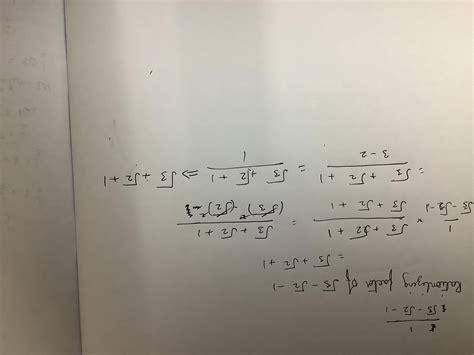 1
√3 - √2 - 1
Rationalizing factor of √3 - √2 - 1
= √3 + √2 + 1
1/(√3 - √2 - 1) × (√3 + √2 + 1)/(√3 + √2 + 1) = (√3 + √2 + 1)/((√3)² - (√2)² - 1)
= (√3 + √2 + 1)/(3 - 2) = (√3 + √2 + 1)/1 ⇒ √3 + √2 + 1